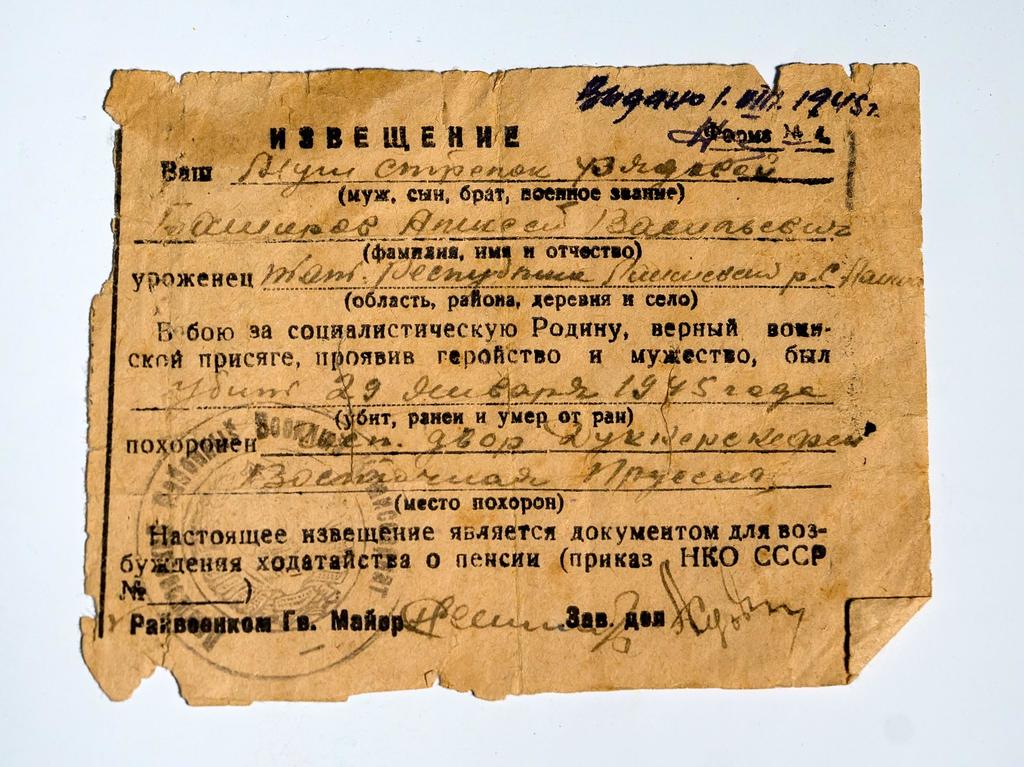 Выдано 1. VIII. 1945 г.
ИЗВЕЩЕНИЕ
Форма № 4.
Ваш Муж стрелок рядовой
(муж, сын, брат, военное звание)
Башкиров Алексей Васильевич
(фамилия, имя и отчество)
уроженец Тат. Республика р. С.
(область, района, деревня и село)
В бою за социалистическую Родину, верный воин-
ской присяге, проявив геройство и мужество, был
убит 29 января 1945 года
(убит, ранен и умер от ран)
похоронен двор
Восточная Пруссия
(место похорон)
Настоящее извещение является документом для воз-
буждения ходатайства о пенсии (приказ НКО СССР
№ )
Райвоенком Гв. Майор Зав. дел